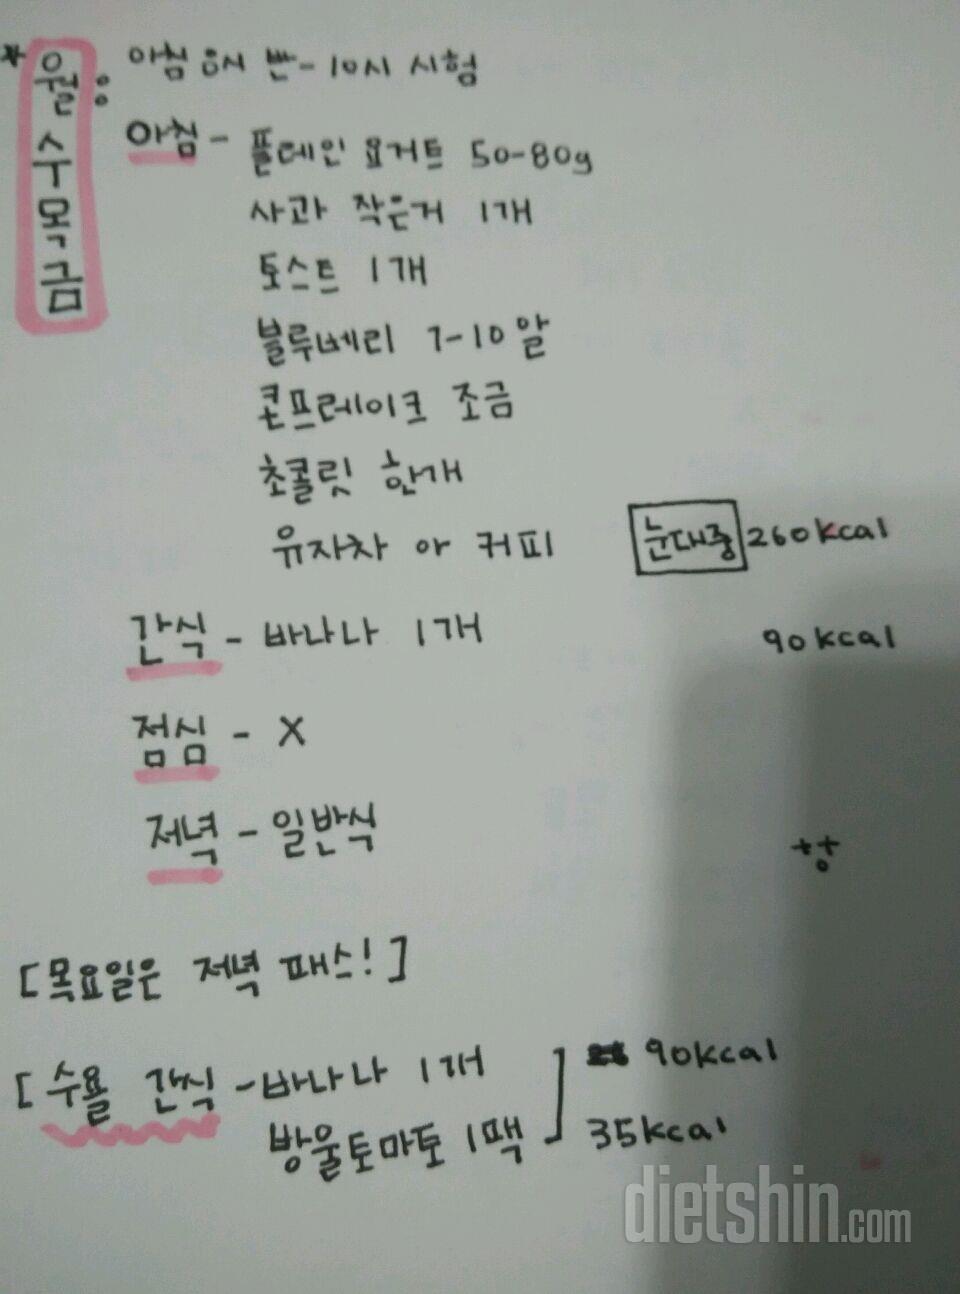 *월수목금 : 아침 8시 반-10시 시험
아침 - 플레인 요거트 50-80g
사과 작은거 1개
토스트 1개
블루베리 7-10알
콘프레이크 조금
초콜릿 한개
유자차 아 커피 눈대중 260kcal
간식 - 바나나 1개 90kcal
점심 - X
저녁 - 일반식
[목요일은 저녁 패스!]
[수욜 간식 - 바나나 1개 ] 90kcal
방울토마토 1팩 35kcal
dietshin.com